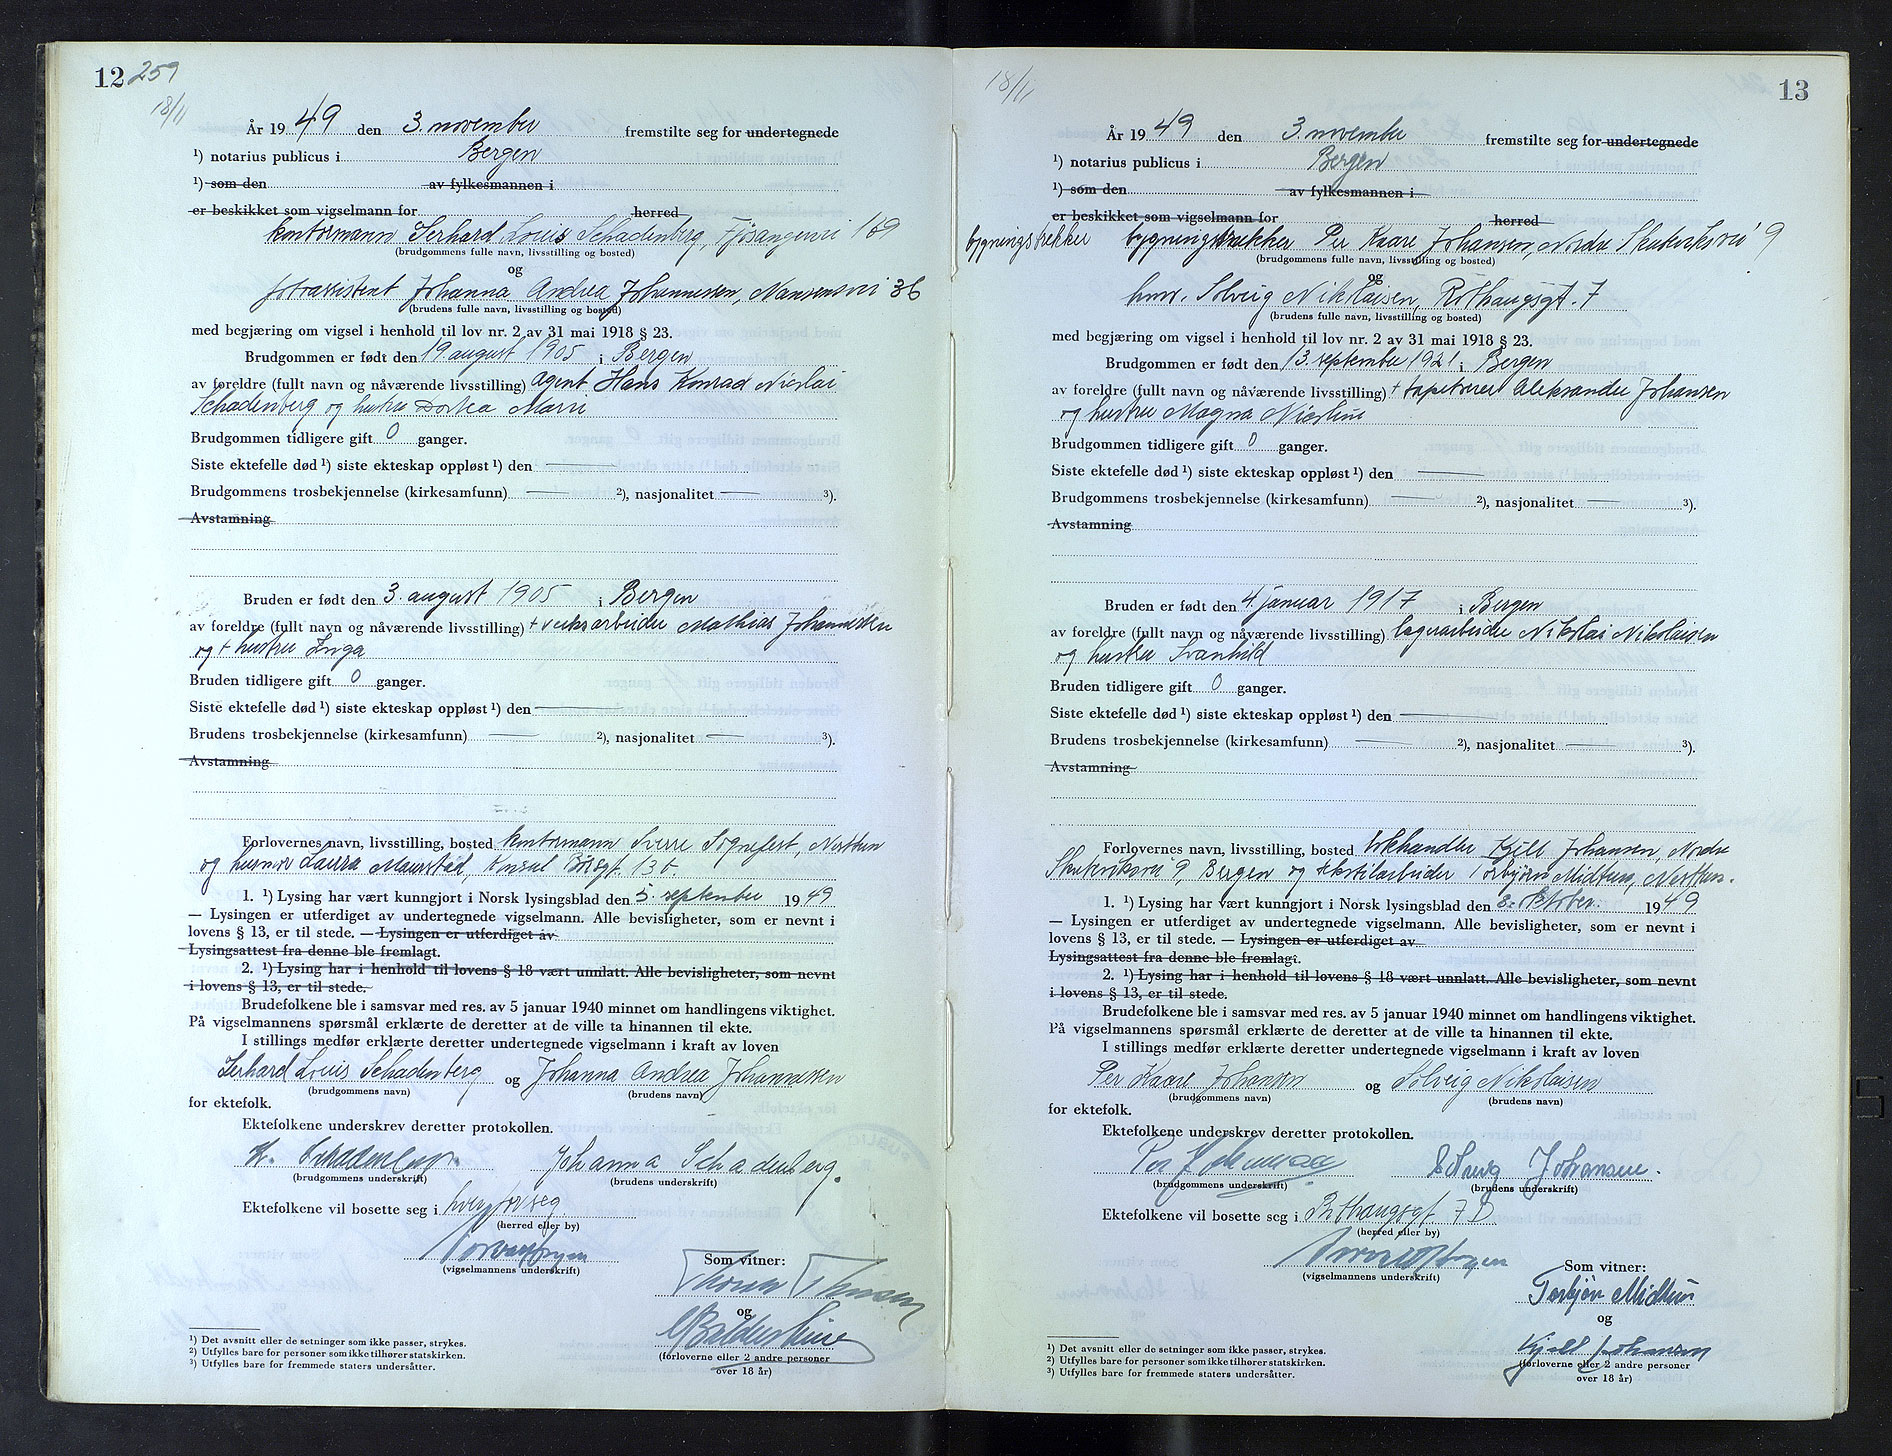 12 259
18/11
År 19 49 den 3. november fremstilte seg for undertegnede
¹) notarius publicus i Bergen
¹) som den av fylkesmannen i
er beskikket som vigselmann for herred
kontormann Gerhard Louis Schadenberg, Fjøsangervei 169
(brudgommens fulle navn, livsstilling og bosted)
og
Johanna Andrea Johannessen, Nansensvei 36
(brudens fulle navn, livsstilling og bosted)
med begjæring om vigsel i henhold til lov nr. 2 av 31 mai 1918 § 23.
Brudgommen er født den 19 august 1905 i Bergen
av foreldre (fullt navn og nåværende livsstilling) Agent Hans Konrad Nicolai
Schadenberg og hustru Dortea Marri
Brudgommen tidligere gift 0 ganger.
Siste ektefelle død ¹) siste ekteskap oppløst ¹) den —
Brudgommens trosbekjennelse (kirkesamfunn) — ²), nasjonalitet — ³).
Avstamning
Bruden er født den 3. august 1905 i Bergen
av foreldre (fullt navn og nåværende livsstilling) + verksarbeider Mathias Johannessen
og + hustru Inga
Bruden tidligere gift 0 ganger.
Siste ektefelle død ¹) siste ekteskap oppløst ¹) den —
Brudens trosbekjennelse (kirkesamfunn) — ²), nasjonalitet — ³).
Avstamning
Forlovernes navn, livsstilling, bosted kontormann Sverre Sognefest, Nesttun
og husmor Laura Maurstad, Konsul Børsgt. 13 b.
1. ¹) Lysing har vært kunngjort i Norsk lysingsblad den 5. september 1949
— Lysingen er utferdiget av undertegnede vigselmann. Alle bevisligheter, som er nevnt i
lovens § 13, er til stede. — Lysingen er utferdiget av
Lysingsattest fra denne ble fremlagt.
2. ¹) Lysing har i henhold til lovens § 18 vært unnlatt. Alle bevisligheter, som nevnt
i lovens § 13, er til stede.
Brudefolkene ble i samsvar med res. av 5 januar 1940 minnet om handlingens viktighet.
På vigselmannens spørsmål erklærte de deretter at de ville ta hinannen til ekte.
I stillings medfør erklærte deretter undertegnede vigselmann i kraft av loven
Gerhard Louis Schadenberg og Johanna Andrea Johannessen
(brudgommens navn) (brudens navn)
for ektefolk.
Ektefolkene underskrev deretter protokollen.
Schadenberg. Johanna Schadenberg.
(brudgommens underskrift) (brudens underskrift)
Ektefolkene vil bosette seg i hver for seg
(herred eller by)
(vigselmannens underskrift)
Som vitner:
og
(forloverne eller 2 andre personer
over 18 år)
¹) Det avsnitt eller de setninger som ikke passer, strykes.
²) Utfylles bare for personer som ikke tilhører statskirken.
³) Utfylles bare for fremmede staters undersåtter.
18/11 13
År 19 49 den 3. november fremstilte seg for undertegnede
¹) notarius publicus i Bergen
¹) som den av fylkesmannen i
er beskikket som vigselmann for herred
bygningstrekker bygningstrekker Per Kaare Johansen, Nordre Skuteviksvei 9
(brudgommens fulle navn, livsstilling og bosted)
og
husm. Solveig Nikolaisen, Rothaugsgt. 7
(brudens fulle navn, livsstilling og bosted)
med begjæring om vigsel i henhold til lov nr. 2 av 31 mai 1918 § 23.
Brudgommen er født den 13. september 1921 i Bergen
av foreldre (fullt navn og nåværende livsstilling) + tapetserer Aleksander Johansen
og hustru Magna Nicoline
Brudgommen tidligere gift 0 ganger.
Siste ektefelle død ¹) siste ekteskap oppløst ¹) den —
Brudgommens trosbekjennelse (kirkesamfunn) — ²), nasjonalitet — ³).
Avstamning
Bruden er født den 4. januar 1917 i Bergen
av foreldre (fullt navn og nåværende livsstilling) lagerarbeider Nikolai Nikolaisen
og hustru Svanhild
Bruden tidligere gift 0 ganger.
Siste ektefelle død ¹) siste ekteskap oppløst ¹) den —
Brudens trosbekjennelse (kirkesamfunn) — ²), nasjonalitet — ³).
Avstamning
Forlovernes navn, livsstilling, bosted Kjell Johansen, Nordre
Skuteviksvei 9, Bergen og tekstilarbeider Torbjørn Midttun, Nesttun.
1. ¹) Lysing har vært kunngjort i Norsk lysingsblad den 8. oktober. 1949
— Lysingen er utferdiget av undertegnede vigselmann. Alle bevisligheter, som er nevnt i
lovens § 13, er til stede. — Lysingen er utferdiget av
Lysingsattest fra denne ble fremlagt.
2. ¹) Lysing har i henhold til lovens § 18 vært unnlatt. Alle bevisligheter, som nevnt
i lovens § 13, er til stede.
Brudefolkene ble i samsvar med res. av 5 januar 1940 minnet om handlingens viktighet.
På vigselmannens spørsmål erklærte de deretter at de ville ta hinannen til ekte.
I stillings medfør erklærte deretter undertegnede vigselmann i kraft av loven
Per Kaare Johansen og Solveig Nikolaisen
(brudgommens navn) (brudens navn)
for ektefolk.
Ektefolkene underskrev deretter protokollen.
Per Johansen Solveig Johansen.
(brudgommens underskrift) (brudens underskrift)
Ektefolkene vil bosette seg i Rothaugsgt 7 D
(herred eller by)
(vigselmannens underskrift)
Som vitner:
Torbjørn Midttun
og
Kjell Johansen
(forloverne eller 2 andre personer
over 18 år)
¹) Det avsnitt eller de setninger som ikke passer, strykes.
²) Utfylles bare for personer som ikke tilhører statskirken.
³) Utfylles bare for fremmede staters undersåtter.